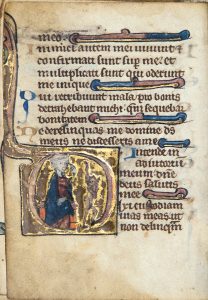 meo
Inimici autem mei vivunt et
confirmati sunt sup me: et
multiplicati sunt qui oderunt
me inique
Qui retribuunt mala pro bonis
detrahebant michi: qm sequebar
bonitatem
Ne derelinquas me domine ds
meus ne discesseris a me
Intende in
adiutori
meum dne
deus salutis
mee
Dixi custodiam
vias meas ut
non delinqam